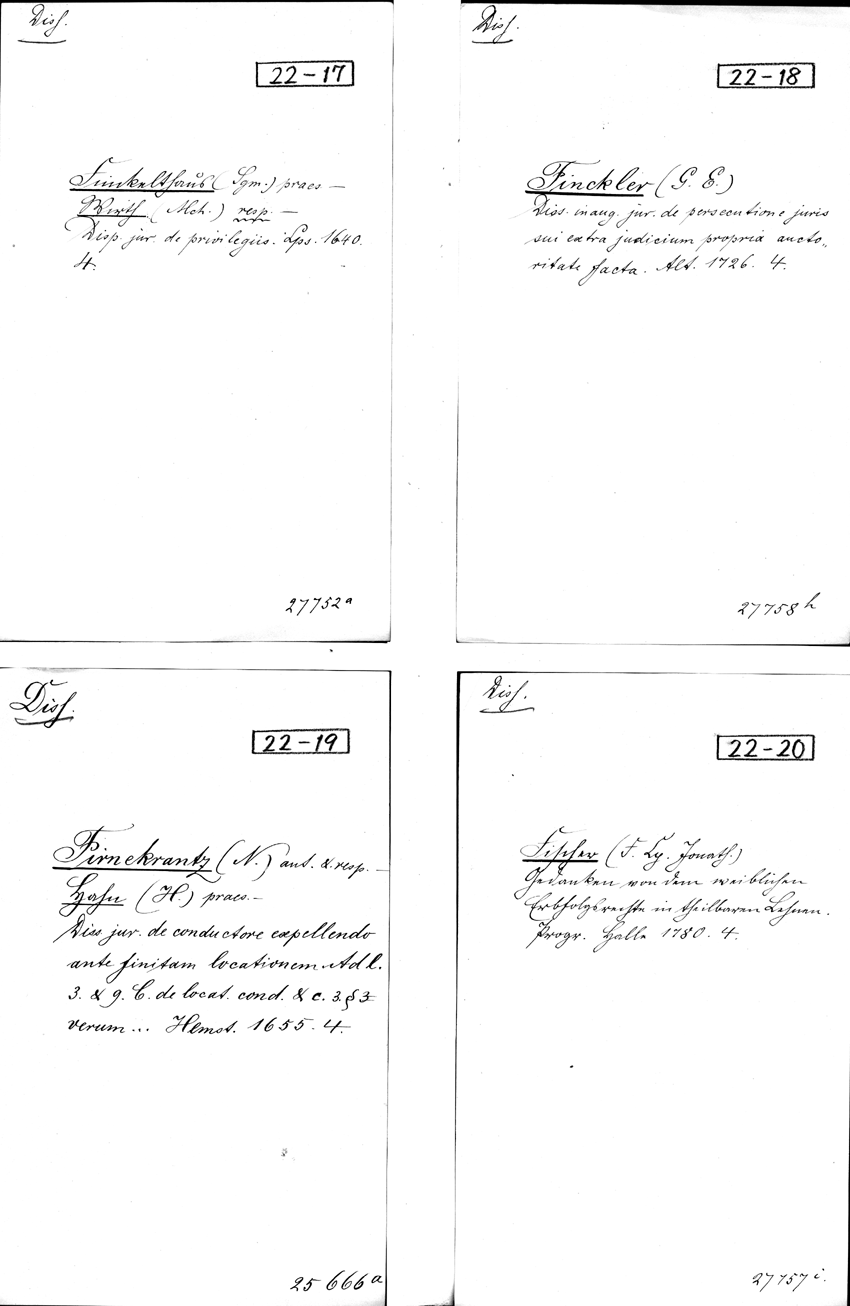 Diss.
22-17
Finckelthaus (Sgm.) praes. —
Wirth (Mch.) resp. —
Disp. jur. de privilegiis. Lps. 1640.
4.
27752a
Diss.
22-18
Finckler (G. E.)
Diss. inaug. jur. de persecutione juris
sui extra judicium propria aucto„
ritate facta. Alt. 1726. 4.
27758h
Diss.
22-19
Firnekrantz (N.) aut. & resp. —
Hahn (H.) praes. —
Diss. jur. de conductore expellendo
ante finitam locationem. Ad l.
3. & 9. C. de locat. cond. & c. 3. § 3
verum ... Hlmst. 1655. 4.
25666a
Diss.
22-20
Fischer (F. Cp. Jonath.)
Gedanken von dem weiblichen
Erbfolgsrechte in theilbaren Lehnen.
Progr. Halle 1780. 4.
27757i.